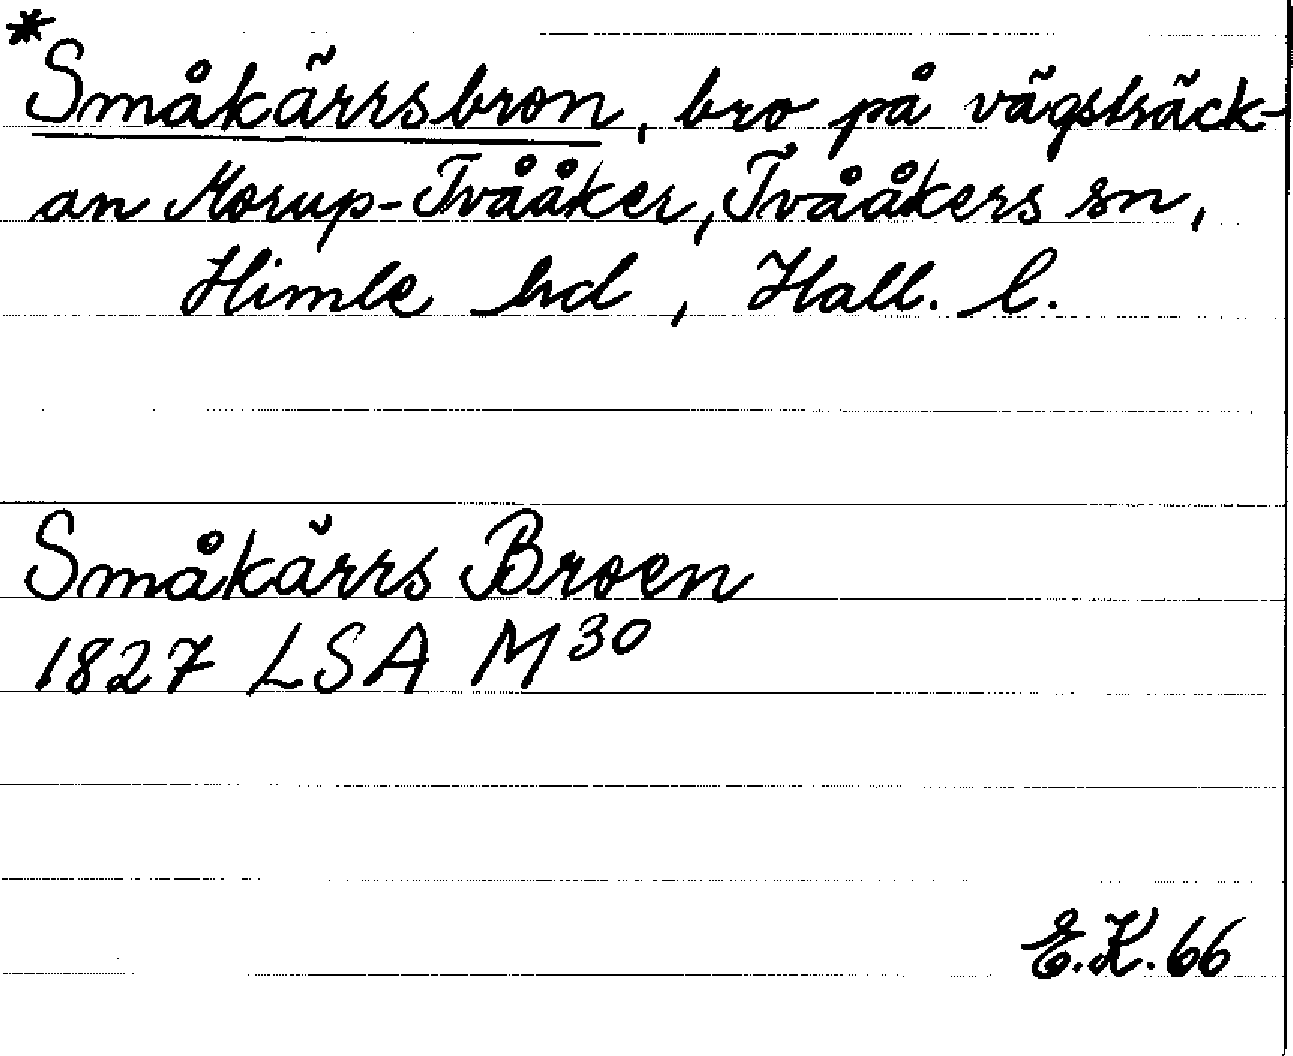 *
Småkärrsbron, bro på vägsträck-
an Morup-Tvååker, Tvååkers sn,
Himle hd, Hall. l.
Småkärrs Broen
1827 LSA M30
E.K. 66